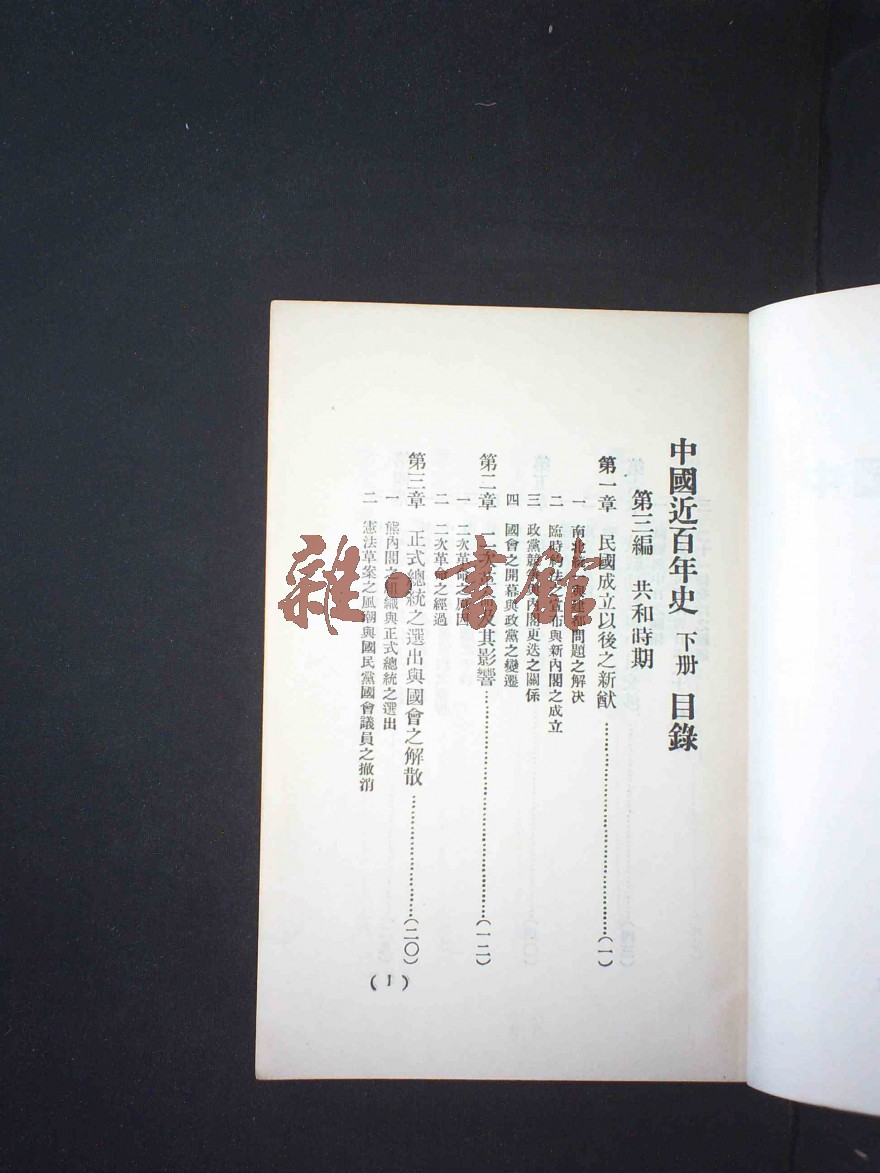 中國近百年史 下册 目錄
第三編 共和時期
第一章 民國成立以後之新猷……(一)
一 南北統一與建都問題之解决
二 臨時約法之宣布與新內閣之成立
三 政黨競爭與內閣更迭之關係
四 國會之開幕與政黨之變遷
第二章 二次革命及其影響……(一二)
一 二次革命之原因
二 二次革命之經過
第三章 正式總統之選出與國會之解散……(二〇)
一 熊內閣之組織與正式總統之選出
二 憲法草案之風潮與國民黨國會議員之撤消
(1)
雜·書館